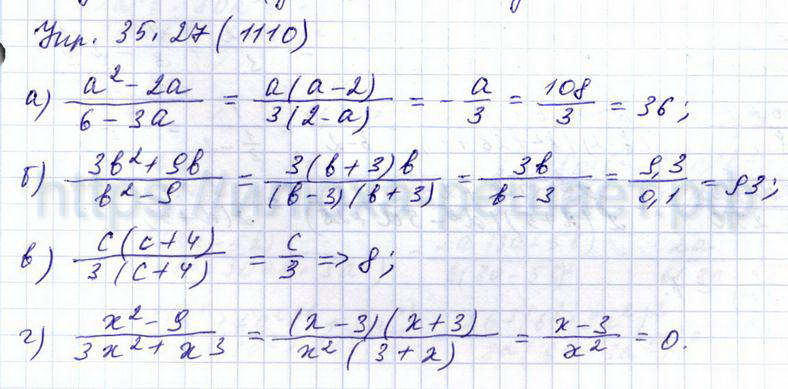 Упр. 35.27 (1110)
а) (a² - 2a)/(6 - 3a) = a(a-2)/3(2-a) = -a/3 = 108/3 = 36;
б) (3b² + 9b)/(b² - 9) = 3(b+3)b/(b-3)(b+3) = 3b/(b-3) = 9,3/0,1 = 93;
в) c(c+4)/3(c+4) = c/3 => 8;
г) (x² - 9)/(3x² + x3) = (x-3)(x+3)/x²(3+x) = (x-3)/x² = 0.